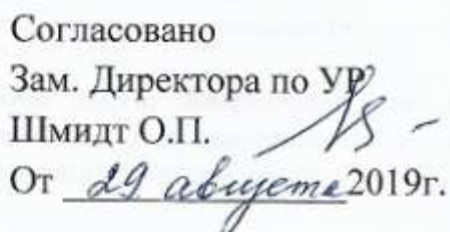 Согласовано
Зам. Директора по УР
Шмидт О.П.
От 29 августа 2019г.